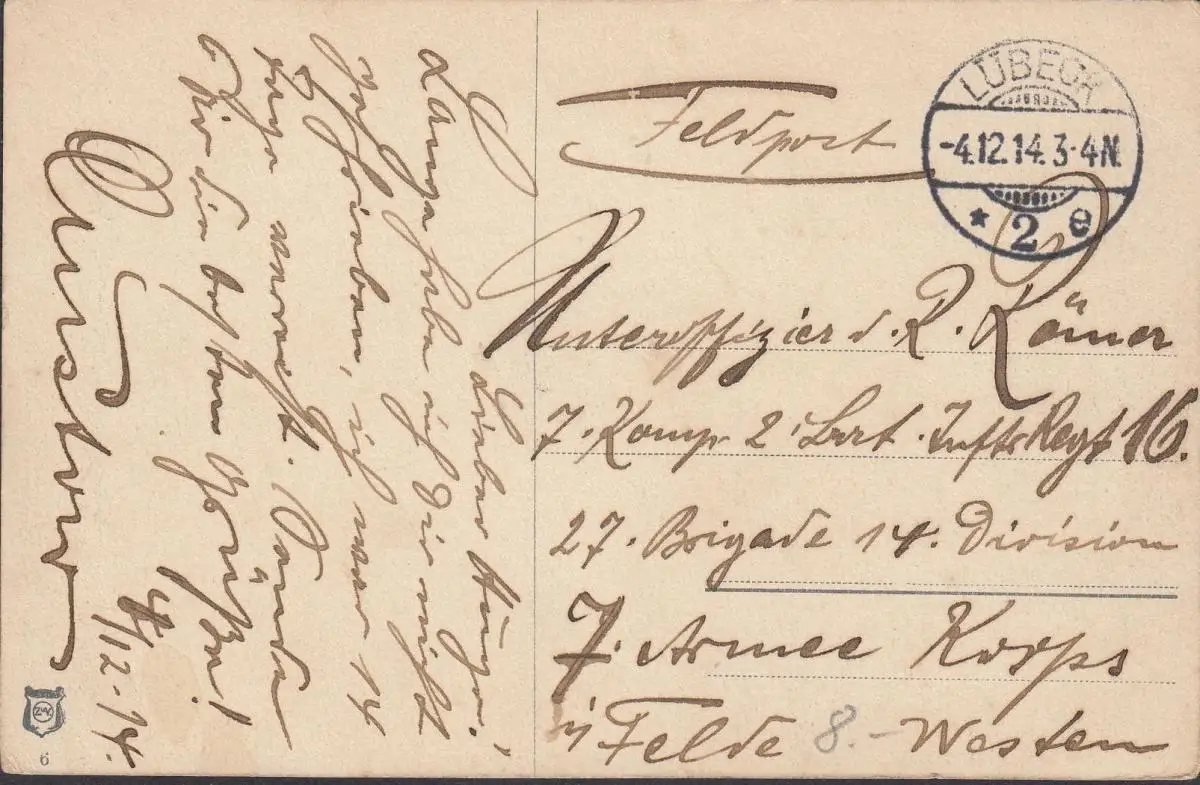 Lieber Hugo!
Lange habe ich Dir nicht
geschrieben, ich war 14
Tage verreist. Sende
Dir die besten Grüße!
4/12.14.
Feldpost
LÜBECK
-4.12.14.3-4N.
* 2 e
Unteroffizier d. R. Römer
7. Komp. 2. Bat. Inftr Regt 16.
27. Brigade 14. Division
7. Armee Korps
i/ Felde 8.- Westen
ZVK
6